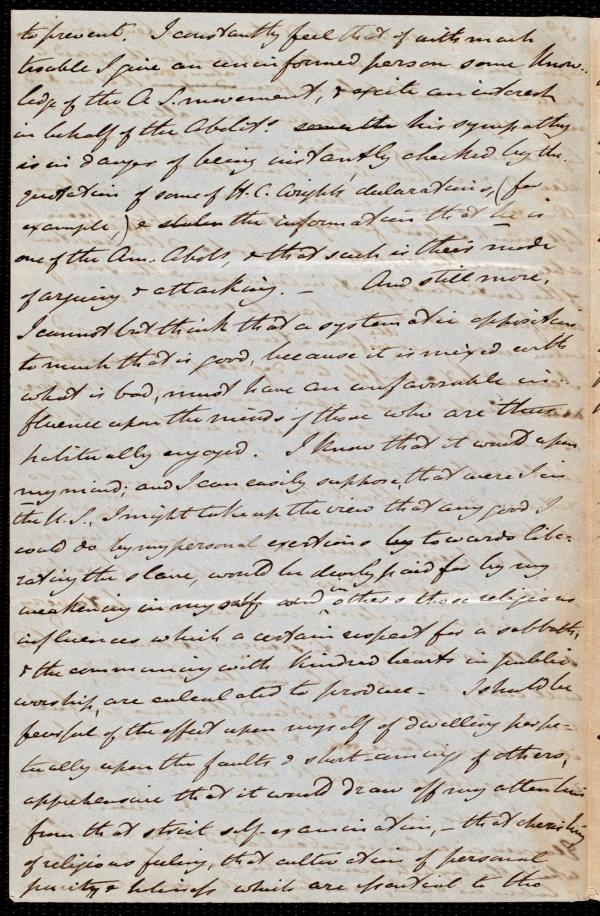 to prevent. I constantly feel that if with much
trouble I give an uninformed person some know-
ledge of the A. S. movement, & excite an interest
in behalf of the Abolts. his sympathy
is in danger of being instantly checked by the
quotation of some of H. C. Wright's declarations, (for
example,) & the information that he is
one of the Am. Abols, & that such is their mode
of arguing & attacking. — And still more,
I cannot but think that a systematic opposition
to much that is good, because it is mixed with
what is bad, must have an unfavorable in-
fluence upon the minds of those who are thus
habitually engaged. I know that it would upon
my mind; and I can easily suppose, that were I in
the U.S., I might take up the view that any good I
could do by my personal exertions by towards libe-
rating the slave, would be dearly paid for by my
weakening in my self and in others those religious
influences which a certain respect for a sabbath,
& the communing with kindred hearts in public
worship, are calculated to produce — I should be
fearful of the effect upon myself of dwelling perpe-
tually upon the faults & short-comings of others,
apprehensive that it would draw off my attention
from that strict self examination, — that cherishing
of religious feeling, that cultivation of personal
purity & holiness which are essential to the